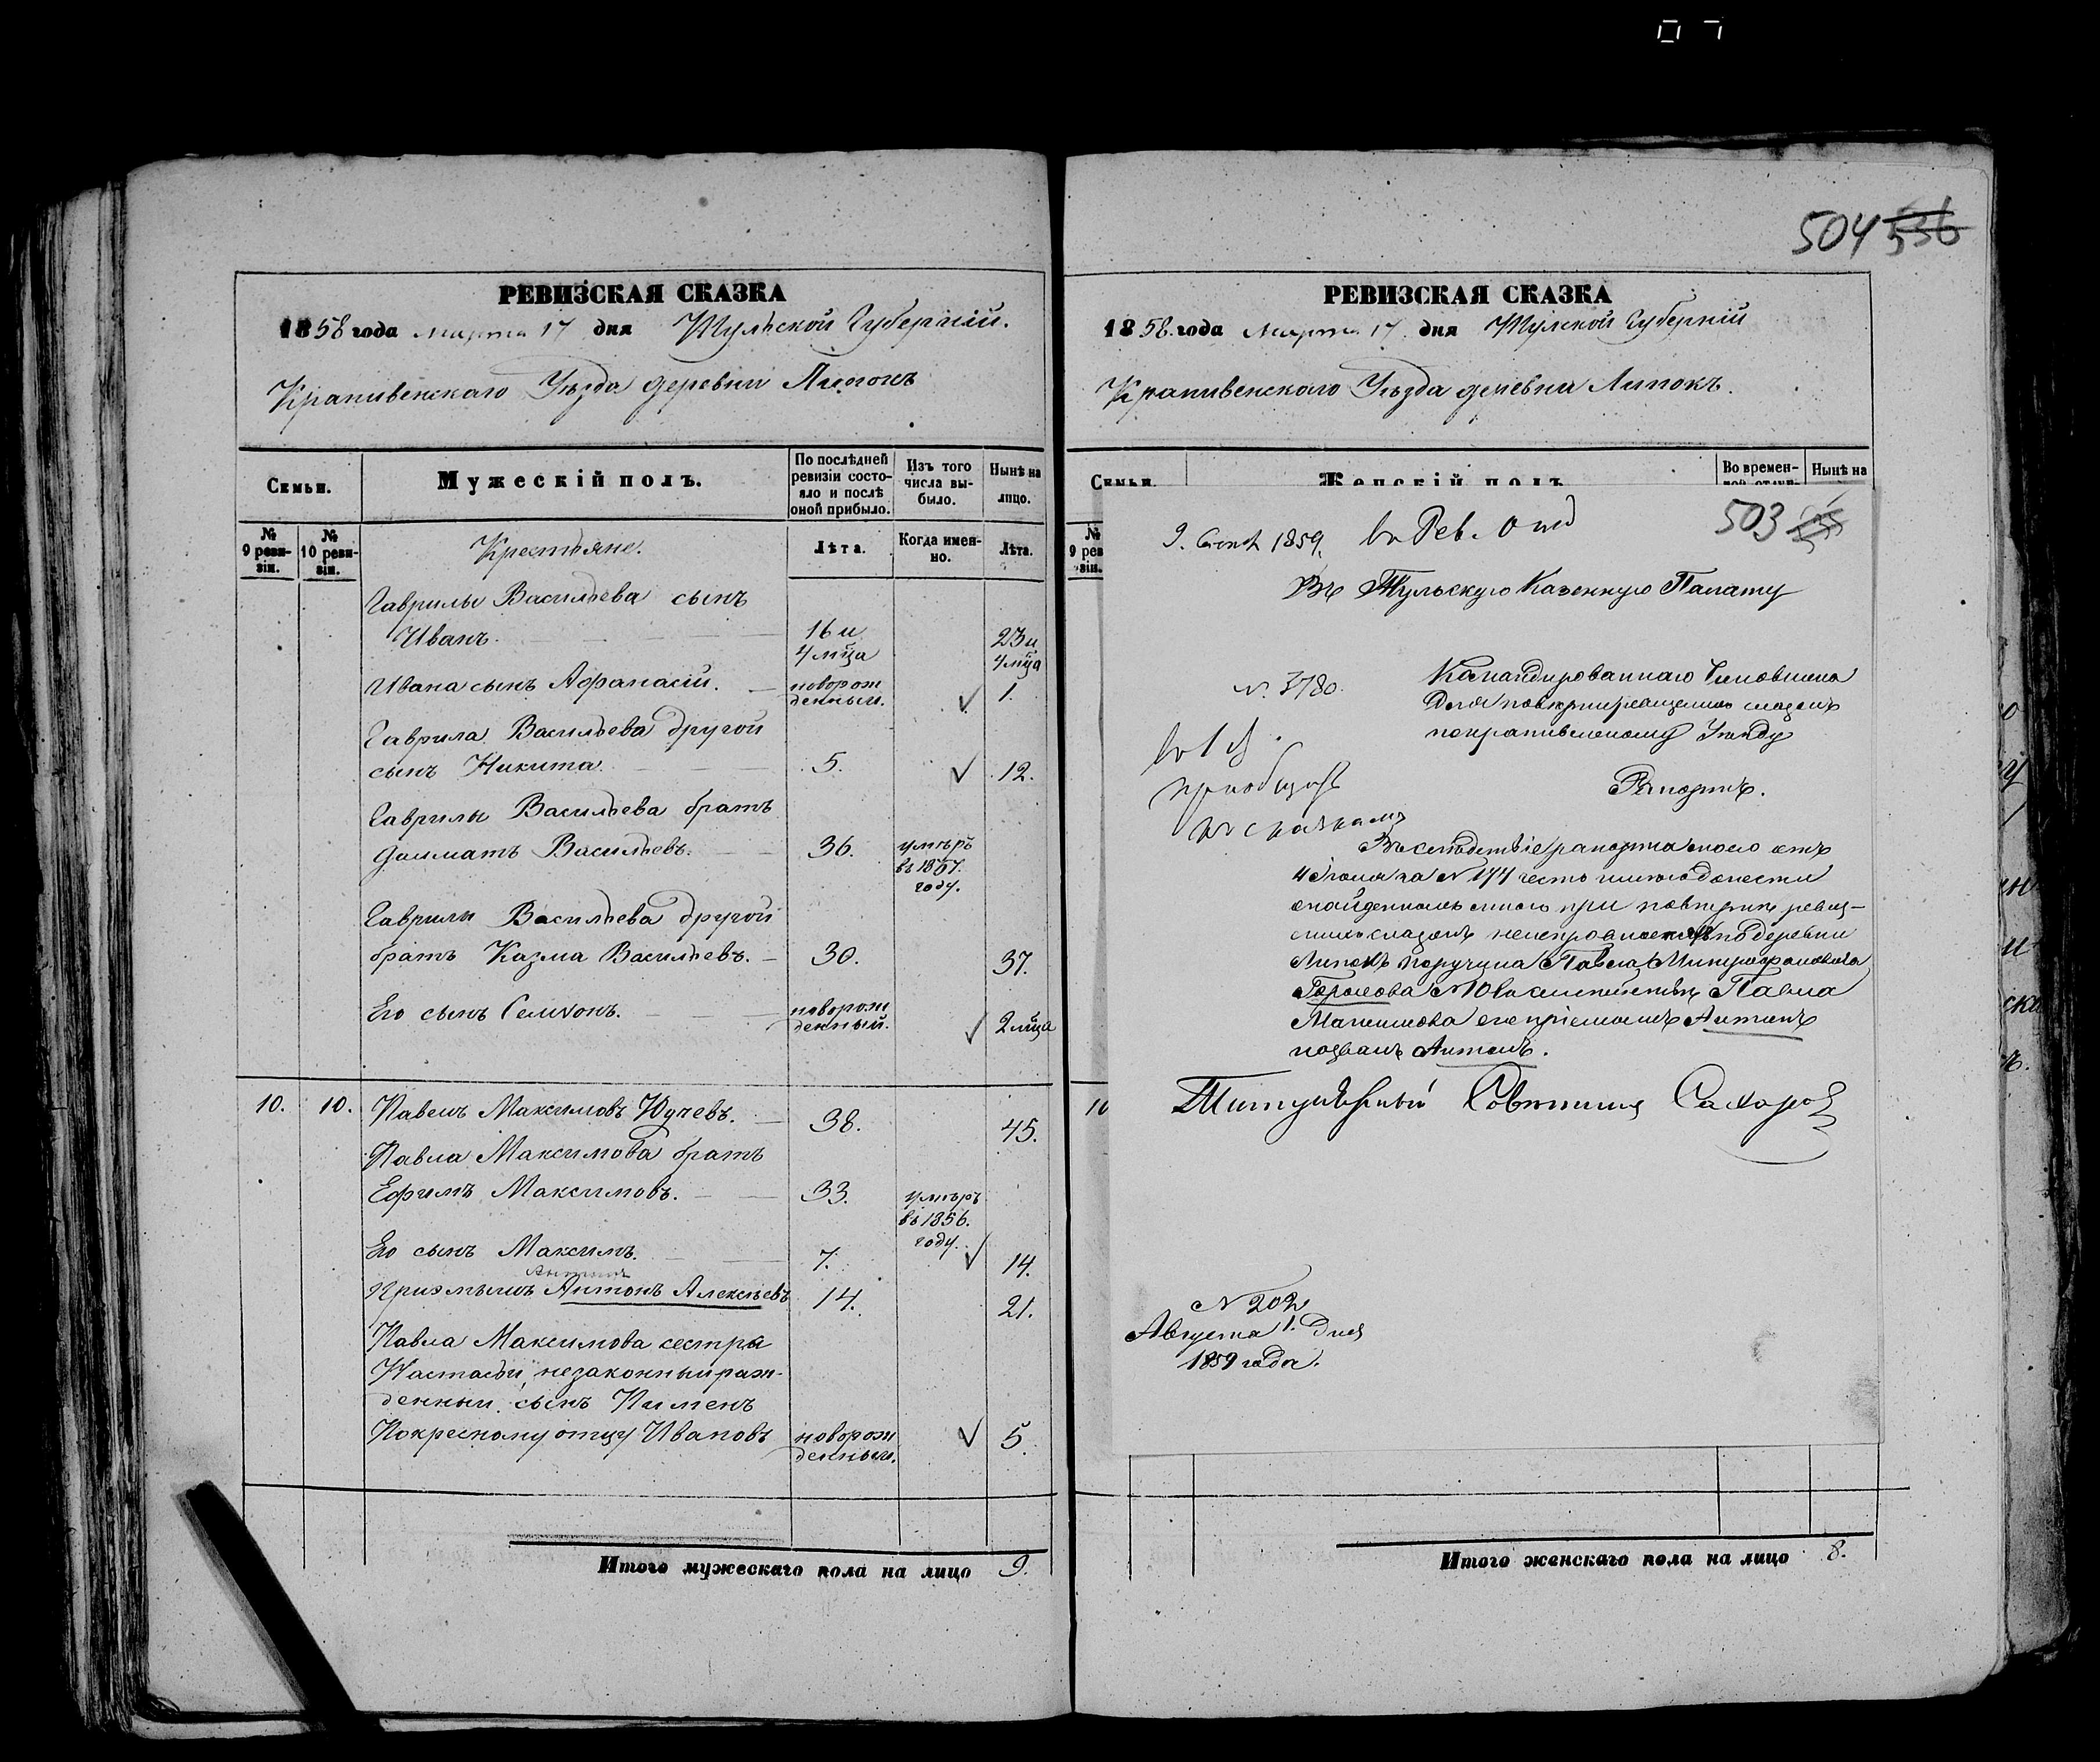 РЕВИЗСКАЯ СКАЗКА
1858 года марта 17 дня Тульской Губерніи.
Крапивенскаго Уѣзда деревни Липокъ
Семьи.
Мужескій полъ.
По послѣдней ревизіи состо-
яло и послѣ
оной прибыло.
Изъ того
числа вы-
было.
Нынѣ на
лицо.
№
9 реви-
зіи.
№
10 реви-
зіи.
Крестьяне.
Лѣта.
Когда имен-
но.
Лѣта.
Гаврилы Васильева сынъ
Иванъ. 16 и 4 мца 23 и 4 мца
Ивана сынъ Афанасій. новорож
денный. 1.
Гаврила Васильева другой
сынъ Никита. 5. 12.
Гаврилы Васильева братъ
Далматъ Васильевъ. 36. умеръ
въ 1857.
году.
Гаврилы Васильева другой
братъ Казма Васильевъ. 30. 37.
Его сынъ Семіонъ. новорож
денный. 2 мца
10. 10. Павелъ Максимовъ 38. 45.
Павла Максимова братъ
Ефимъ Максимовъ. 33. умеръ
въ 1856.
году.
Его сынъ Максимъ. 7. 14.
Пріэмышъ Антонъ Алексѣевъ 14. 21.
Павла Максимова сестры
Настасьи, незаконный раж-
денный, сынъ Пименъ
Покресному отцу Ивановъ новорож
денный. 5.
Итого мужескаго пола на лицо 9.
504 536
РЕВИЗСКАЯ СКАЗКА
1858. года Марта 17. дня Тулской Губерніи
Крапивенскаго Уѣзда деревни Липокъ.
Семьи.
Женскій полъ
Во времен-
Нынѣ на
№
9 рев
зіи.
10
503
1859. въ Рев. Отд
Въ Тульскую Казенную Палату
N. 3780.
Камандированнаго Чиновника
Для повѣрки ревизскихъ сказокъ
покрапивенскому Уѣзду
Рапортъ.
пріобщить
къ сказкамъ
Въслѣдствіе рапорта моего отъ
за N 177 честь имѣю донести
онайденномъ мною при повѣркѣ ревиз-
скихъ сказокъ подеревни
Липокъ поручика Павла Митрофановича
N 10 въ семействѣ Павла
Максимова Антипъ
названъ Антонъ.
Титулярный Совѣтникъ Сахаровъ
N 202
Августа 1. Дня
1859 года.
Итого женскаго пола на лицо 8.